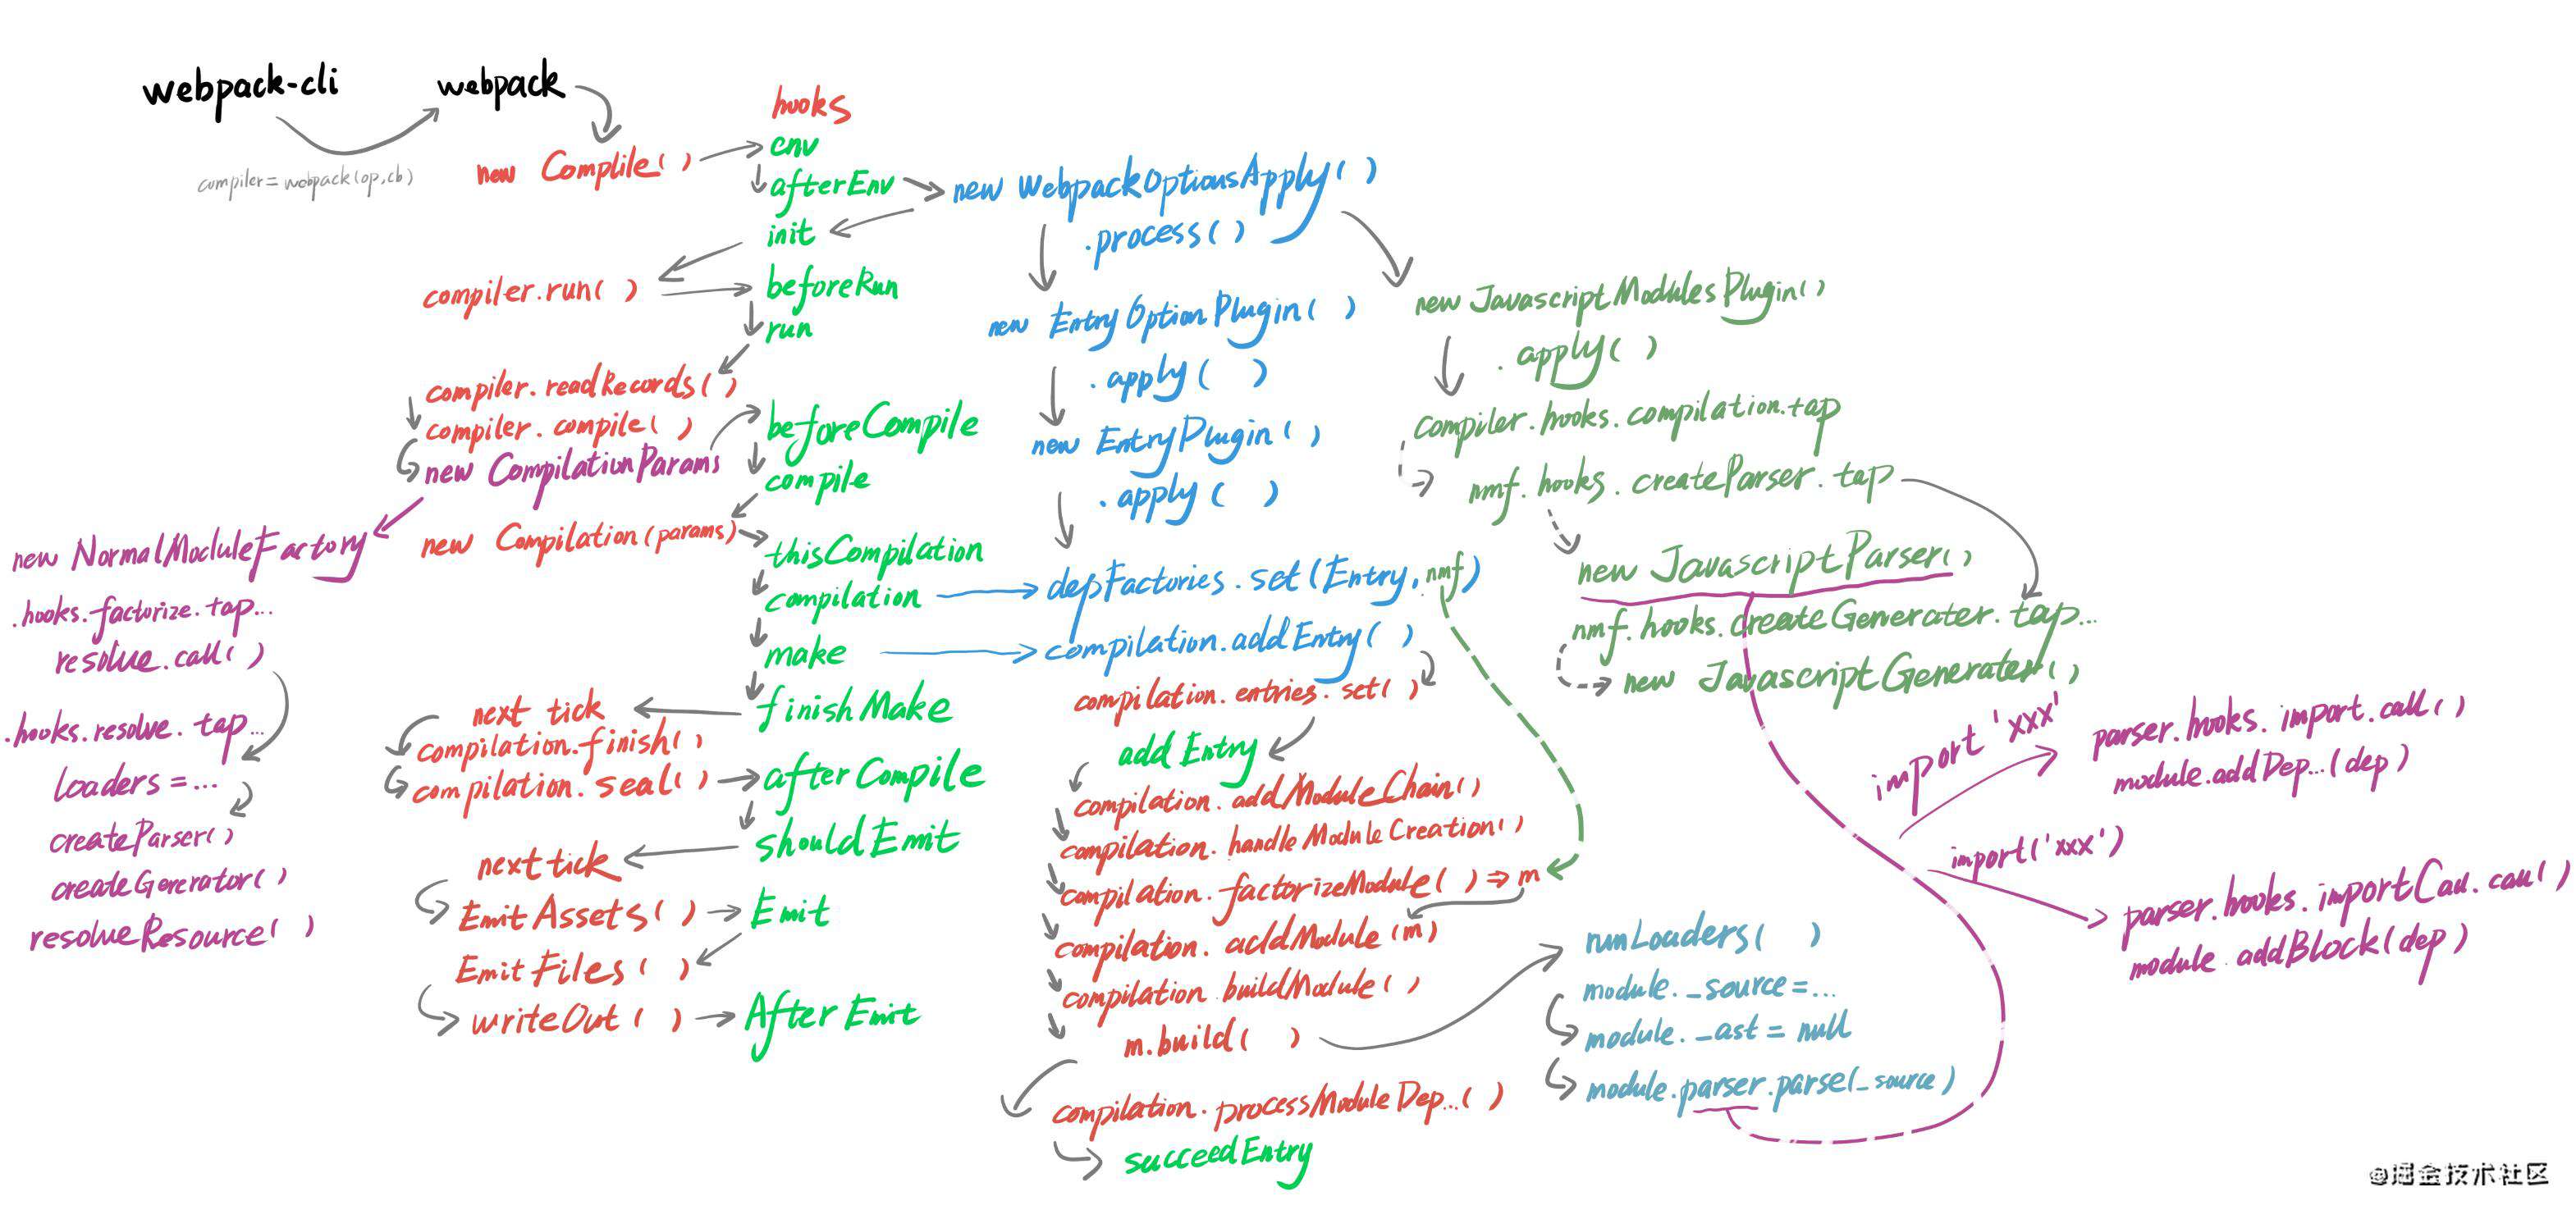 webpack-cli
webpack
compiler=webpack(op,cb)
new Complile()
hooks
env
afterEnv
init
compiler.run()
beforeRun
run
compiler.readRecords()
compiler.compile()
new CompilationParams
beforeCompile
compile
new Compilation(params)
thisCompilation
compilation
make
finishMake
next tick
compilation.finish()
compilation.seal()
afterCompile
shouldEmit
next tick
EmitAssets()
Emit
EmitFiles()
writeOut()
AfterEmit
new NormalModuleFactory
.hooks.factorize.tap...
resolve.call()
.hooks.resolve.tap...
loaders=...
createParser()
createGenerator()
resolveResource()
new WebpackOptionsApply()
.process()
new EntryOptionPlugin()
.apply()
new EntryPlugin()
.apply()
depFactories.set(Entry,nmf)
compilation.addEntry()
compilation.entries.set()
addEntry
compilation.addModuleChain()
compilation.handleModuleCreation()
compilation.factorizeModule()⇒m
compilation.addModule(m)
compilation.buildModule()
m.build()
compilation.processModuleDep...()
succeedEntry
new JavascriptModulesPlugin()
.apply()
compiler.hooks.compilation.tap
nmf.hooks.createParser.tap
new JavascriptParser()
nmf.hooks.createGenerater.tap...
new JavascriptGenerater()
runLoaders()
module._source=...
module._ast=null
module.parser.parse(_source)
import 'xxx'
parser.hooks.import.call()
module.addDep...(dep)
import('xxx')
parser.hooks.importCall.call()
module.addBlock(dep)
@掘金技术社区